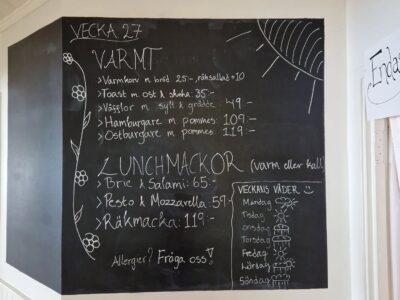 VECKA 27
VARMT
> Varmkorv m. bröd 25:-, räksallad +10
> Toast m. ost & skinka: 35:-
> Våfflor m. sylt & grädde: 49:-
> Hamburgare m. pommes: 109:-
> Ostburgare m. pommes: 119:-
LUNCHMACKOR (varm eller kall)
> Brie & Salami: 65:-
> Pesto & Mozzarella: 59:-
> Räkmacka: 119:-
Allergier? Fråga oss!
VECKANS VÄDER
Måndag
Tisdag
Onsdag
Torsdag
Fredag
Lördag
Söndag
Endas